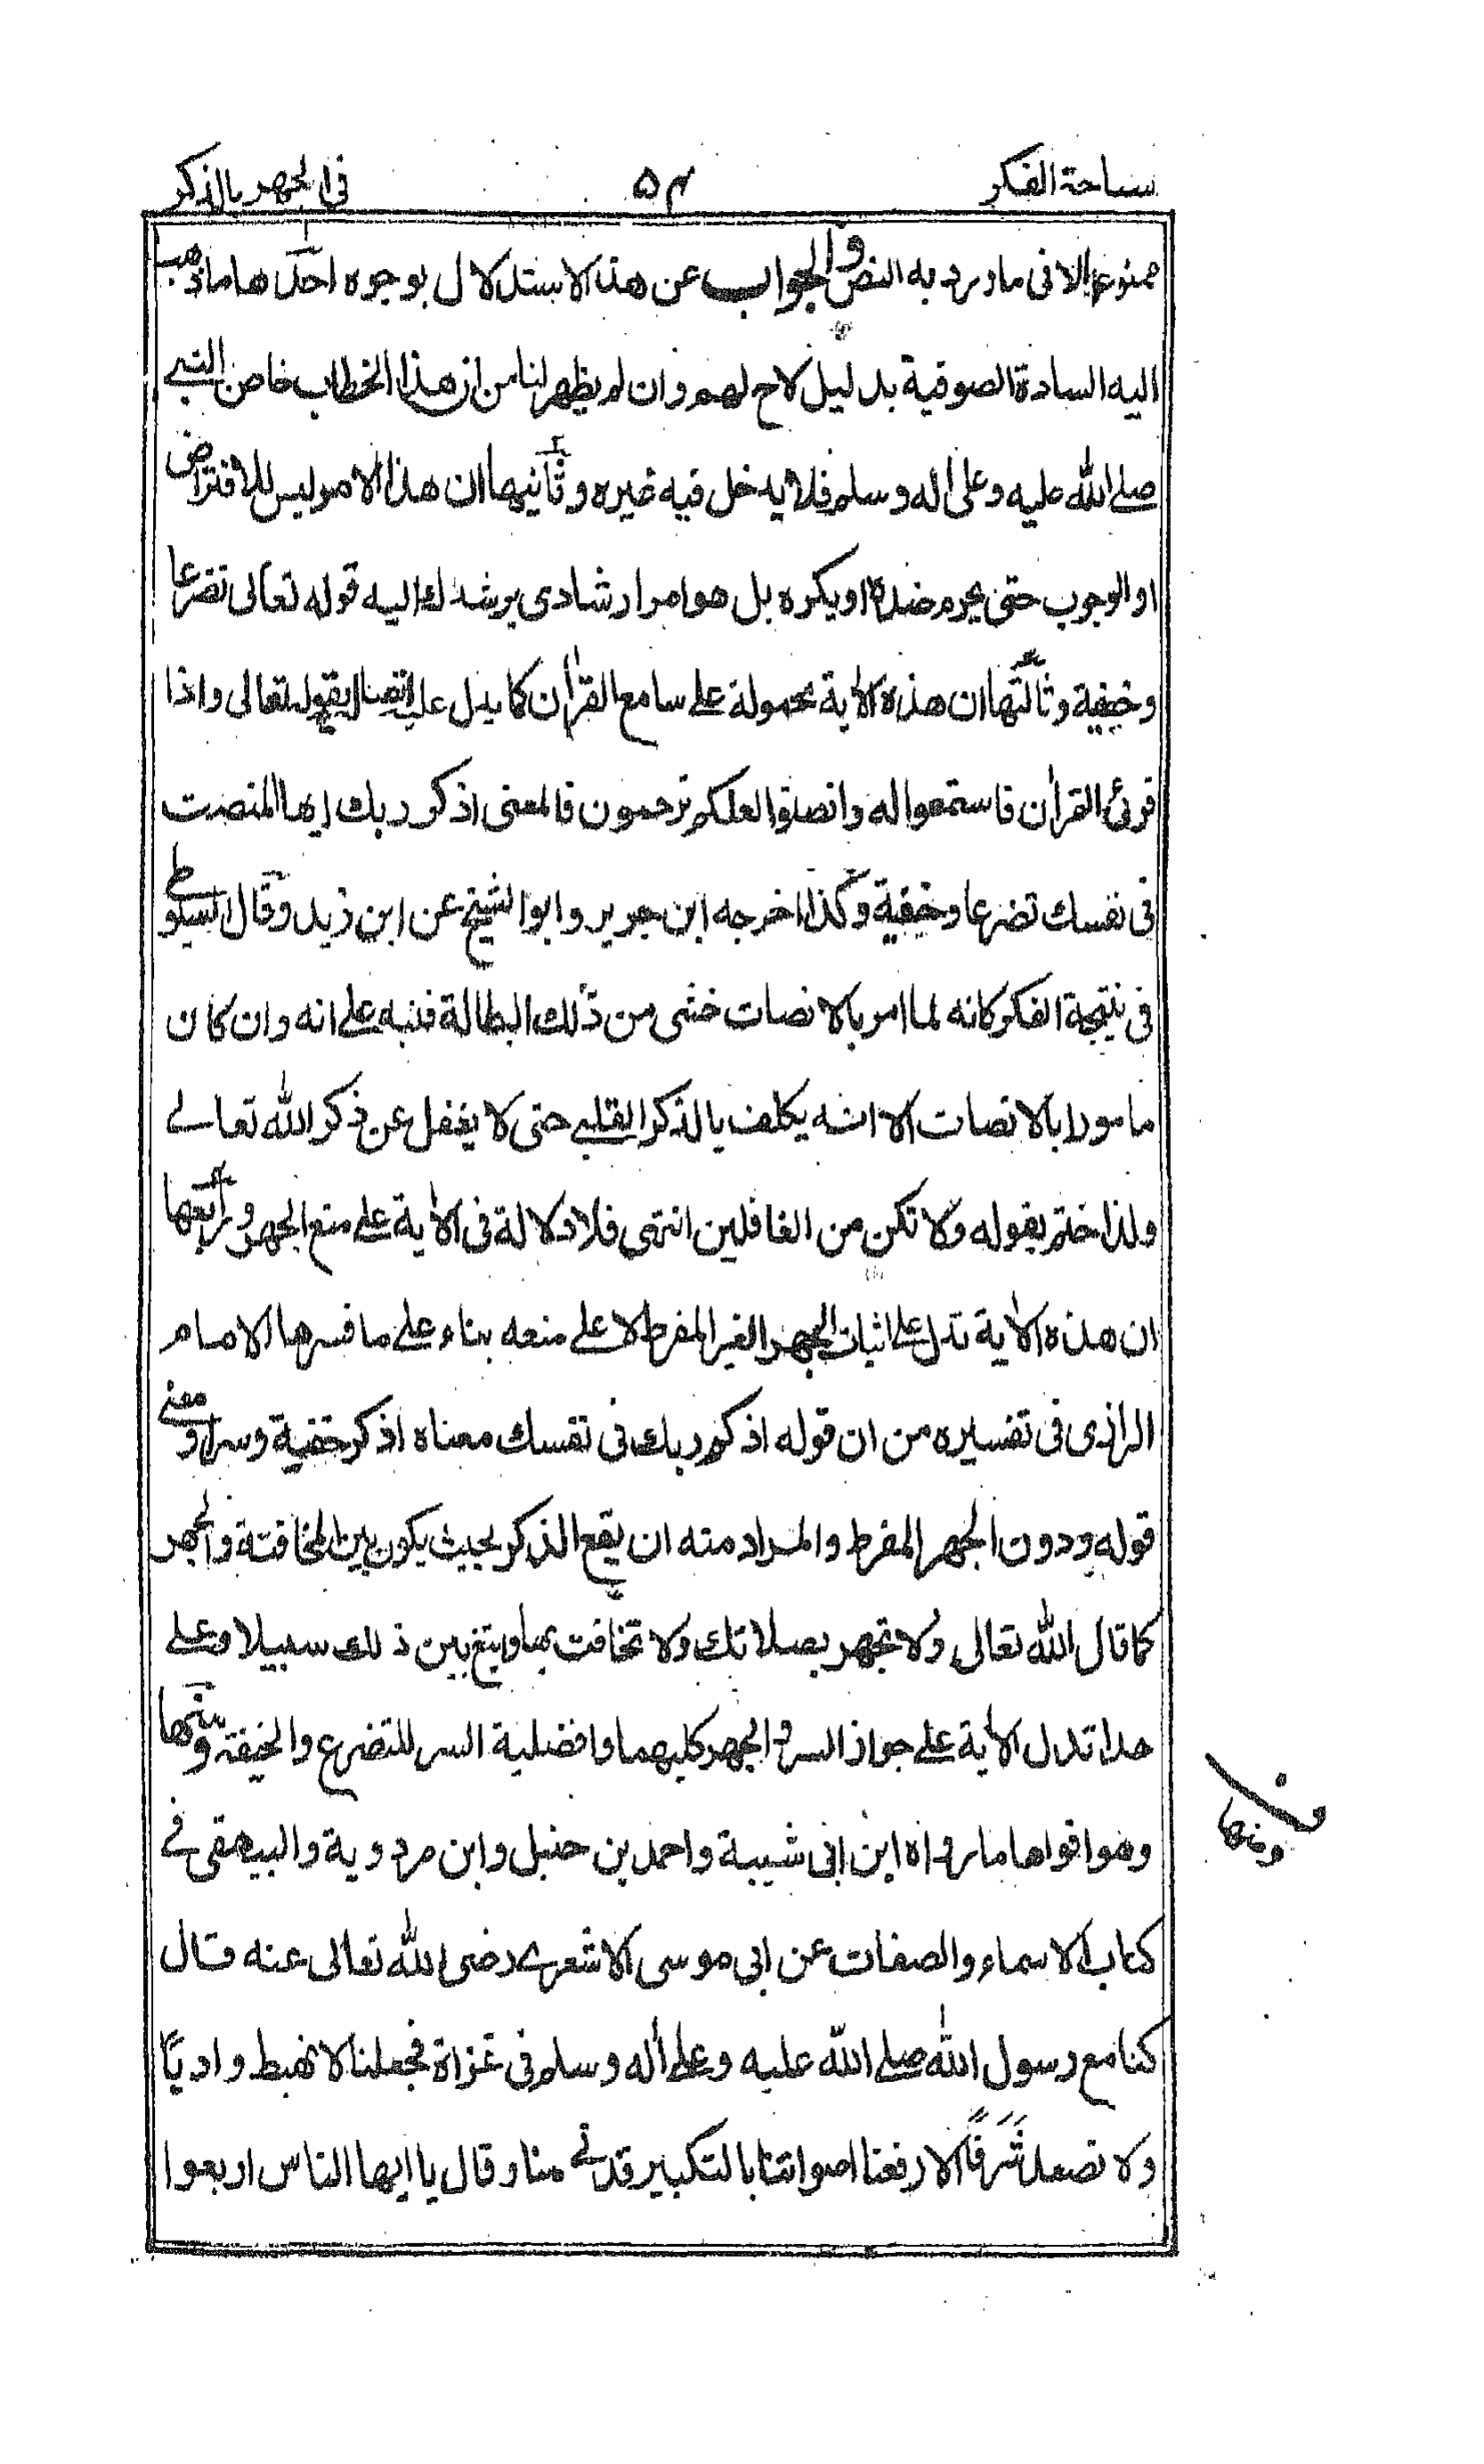 سباحة الفكر ۵۴ فى الجهر بالذكر
ممنوعا الا فى ما ورد به النص والجواب عن هذا الاستدلال بوجوه احدها ما ذهب
اليه السادة الصوفية بدليل لاح لهم وان لم يظهر لنا من ان هذا الخطاب خاص بالنبي
صلى الله عليه وعلى اله وسلم فلا يدخل فيه غيره وثانيها ان هذا الامر ليس للافتراض
او الوجوب حتى يحرم ضده او يكره بل هو امر ارشادى يرشدك اليه قوله تعالى تضرعا
وخيفية وثالثها ان هذه الاٰية محمولة على سامع القراٰن كما يدل عليه اتصاله بقوله تعالى واذا
قرئ القراٰن فاستمعوا له وانصتوا لعلكم ترحمون فالمعنى اذكر ربك ايها المنصت
فى نفسك تضرعا وخيفية وكذا اخرجه ابن جرير وابو الشيخ عن ابن زيد وقال السيوطي
فى نتيجة الفكر كانه لما امر بالانصات خشى من ذلك البطالة فنبه على انه وان كان
مامورا بالانصات الا انه يكلف بالذكر القلبي حتى لا يغفل عن ذكر الله تعالے
ولذا ختم بقوله ولا تكن من الغافلين انتهى فلا دلالة فى الاٰية على منع الجهر ورابعها
ان هذه الاٰية تدل على اثبات الجهر الغير المفرط لا على منعه بناء على ما فسرها الامام
الرازى فى تفسيره من ان قوله اذكر ربك فى نفسك معناه اذكر خفية وسرا ومعنے
قوله ودون الجهر المفرط والمراد منه ان يقع الذكر بحيث يكون بين المخافتة والجهر
كما قال الله تعالى ولا تجهر بصلاتك ولا تخافت بها وابتغ بين ذلك سبيلا وعلے
هذا تدل الاٰية على جواز السر والجهر كليهما وافضلية السر للتضرع والخيفة ومنها
ومنها
وهو اقواها ما رواه ابن ابى شيبة واحمد بن حنبل وابن مردوية والبيهقى فے
كتاب الاسماء والصفات عن ابى موسى الاشعرے رضى الله تعالى عنه قال
كنا مع رسول الله صلے الله عليه وعلى اٰله وسلم فى غزاة فجعلنا لا نهبط واديًا
ولا نصعد شَرَفًا الا رفعنا اصواتنا بالتكبير فدنے منا وقال يا ايها الناس اربعوا